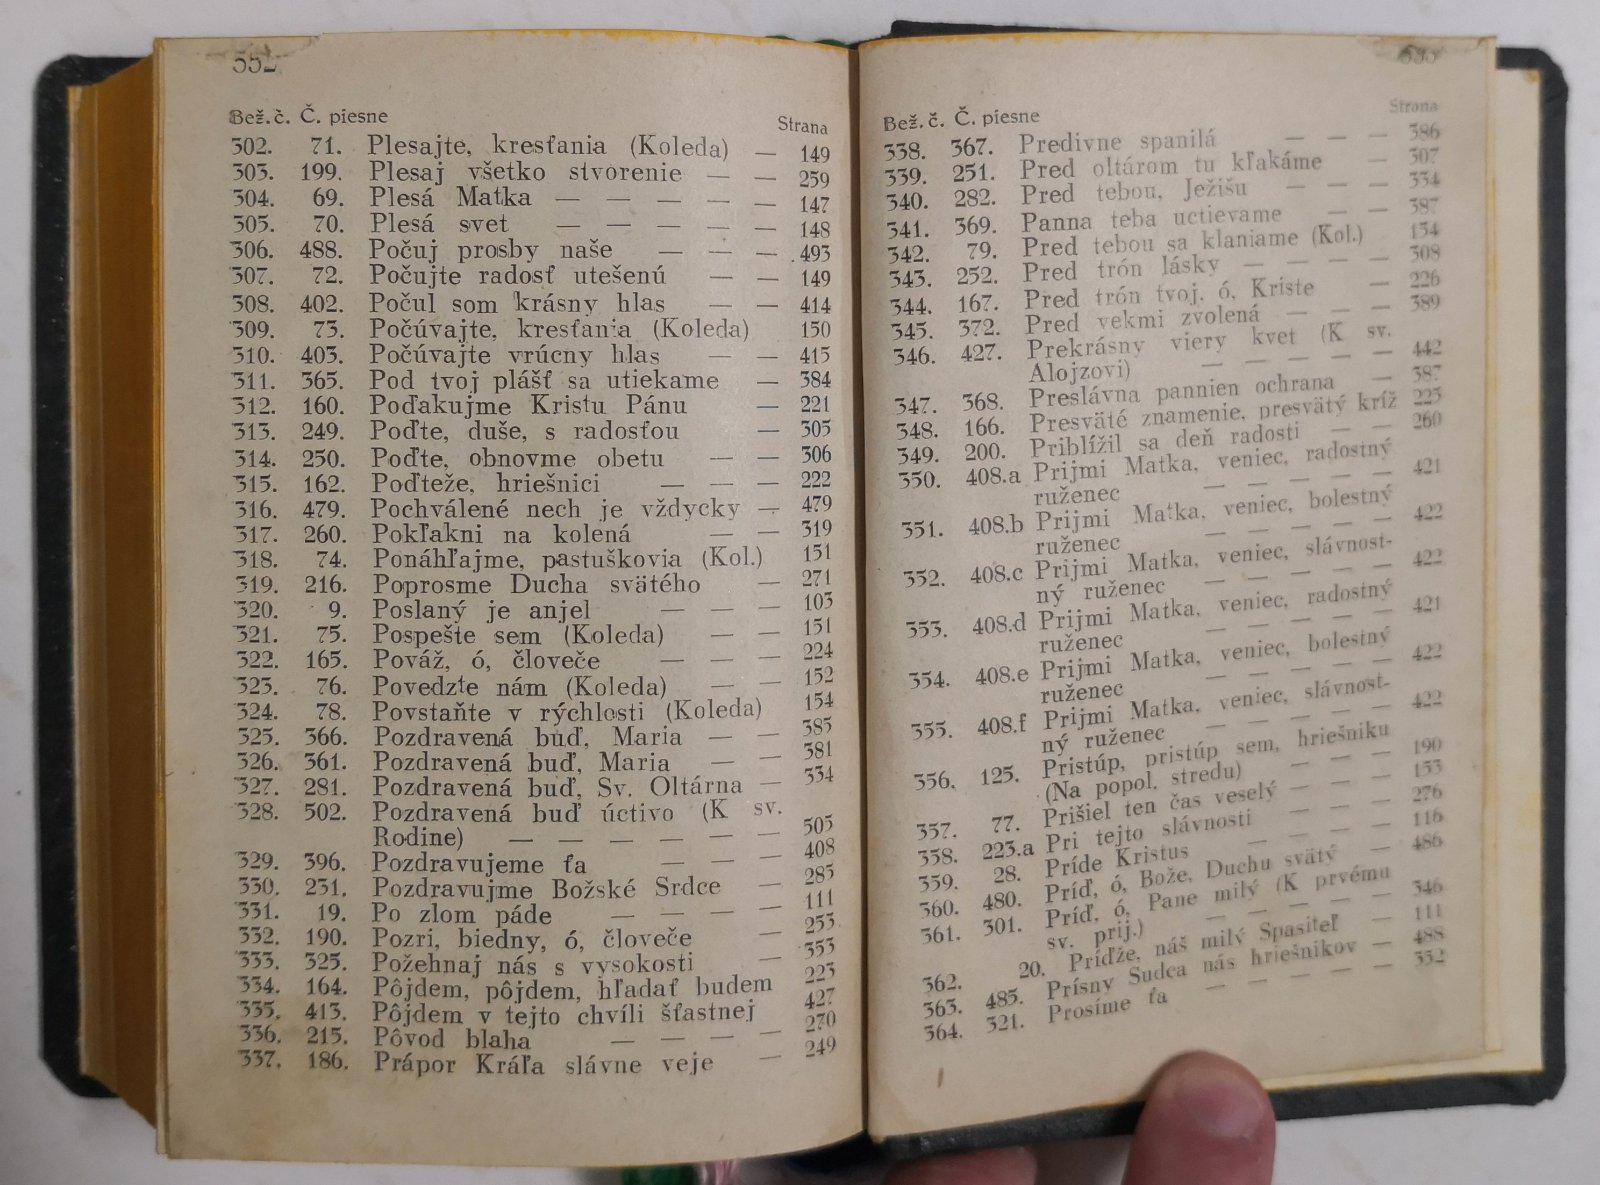 552
Bež. č. Č. piesne Strana
302. 71. Plesajte, kresťania (Koleda) — 149
303. 199. Plesaj všetko stvorenie — — 259
304. 69. Plesá Matka — — — — — 147
305. 70. Plesá svet — — — — — 148
306. 488. Počuj prosby naše — — — 493
307. 72. Počujte radosť utešenú — — 149
308. 402. Počul som krásny hlas — — 414
309. 73. Počúvajte, kresťania (Koleda) 150
310. 403. Počúvajte vrúcny hlas — — 415
311. 365. Pod tvoj plášť sa utiekame — 384
312. 160. Poďakujme Kristu Pánu — 221
313. 249. Poďte, duše, s radosťou — 305
314. 250. Poďte, obnovme obetu — — 306
315. 162. Poďteže, hriešnici — — — 222
316. 479. Pochválené nech je vždycky — 479
317. 260. Pokľakni na kolená — — 319
318. 74. Ponáhľajme, pastuškovia (Kol.) 151
319. 216. Poprosme Ducha svätého — 271
320. 9. Poslaný je anjel — — — 103
321. 75. Pospešte sem (Koleda) — — 151
322. 165. Pováž, ó, človeče — — — 224
323. 76. Povedzte nám (Koleda) — — 152
324. 78. Povstaňte v rýchlosti (Koleda) 154
325. 366. Pozdravená buď, Maria — — 385
326. 361. Pozdravená buď, Maria — — 381
327. 281. Pozdravená buď, Sv. Oltárna — 334
328. 502. Pozdravená buď úctivo (K sv.
Rodine) — — — — — — 505
329. 396. Pozdravujeme ťa — — — 408
330. 231. Pozdravujme Božské Srdce — 285
331. 19. Po zlom páde — — — — 111
332. 190. Pozri, biedny, ó, človeče — 253
333. 325. Požehnaj nás s vysokosti — 353
334. 164. Pôjdem, pôjdem, hľadať budem 223
335. 413. Pôjdem v tejto chvíli šťastnej 427
336. 215. Pôvod blaha — — — — 270
337. 186. Prápor Kráľa slávne veje — 249
553
Bež. č. Č. piesne Strana
338. 367. Predivne spanilá — — — 386
339. 251. Pred oltárom tu kľakáme — 307
340. 282. Pred tebou, Ježišu — — — 334
341. 369. Panna teba uctievame — — 387
342. 79. Pred tebou sa klaniame (Kol.) 154
343. 252. Pred trón lásky — — — — 308
344. 167. Pred trón tvoj, ó, Kriste — 226
345. 372. Pred vekmi zvolená — — — 389
346. 427. Prekrásny viery kvet (K sv.
Alojzovi) — — — — — 442
347. 368. Preslávna pannien ochrana — 387
348. 166. Presväté znamenie, presvätý kríž 225
349. 200. Priblížil sa deň radosti — — 260
350. 408.a Prijmi Matka, veniec, radostný
ruženec — — — — — 421
351. 408.b Prijmi Matka, veniec, bolestný
ruženec — — — — — 422
352. 408.c Prijmi Matka, veniec, slávnost-
ný ruženec — — — — — 422
353. 408.d Prijmi Matka, veniec, radostný
ruženec — — — — — 421
354. 408.e Prijmi Matka, veniec, bolestný
ruženec — — — — — 422
355. 408.f Prijmi Matka, veniec, slávnost-
ný ruženec — — — — — 422
356. 125. Pristúp, pristúp sem, hriešniku
(Na popol. stredu) — — — 190
357. 77. Prišiel ten čas veselý — — — 153
358. 223.a Pri tejto slávnosti — — — 276
359. 28. Príde Kristus — — — — 116
360. 480. Príď, ó, Bože, Duchu svätý — 486
361. 301. Príď, ó, Pane milý (K prvému
sv. prij.) — — — — — 346
362. 20. Príďže, náš milý Spasiteľ — 111
363. 485. Prísny Sudca nás hriešnikov — 488
364. 321. Prosíme ťa — — — — — 352